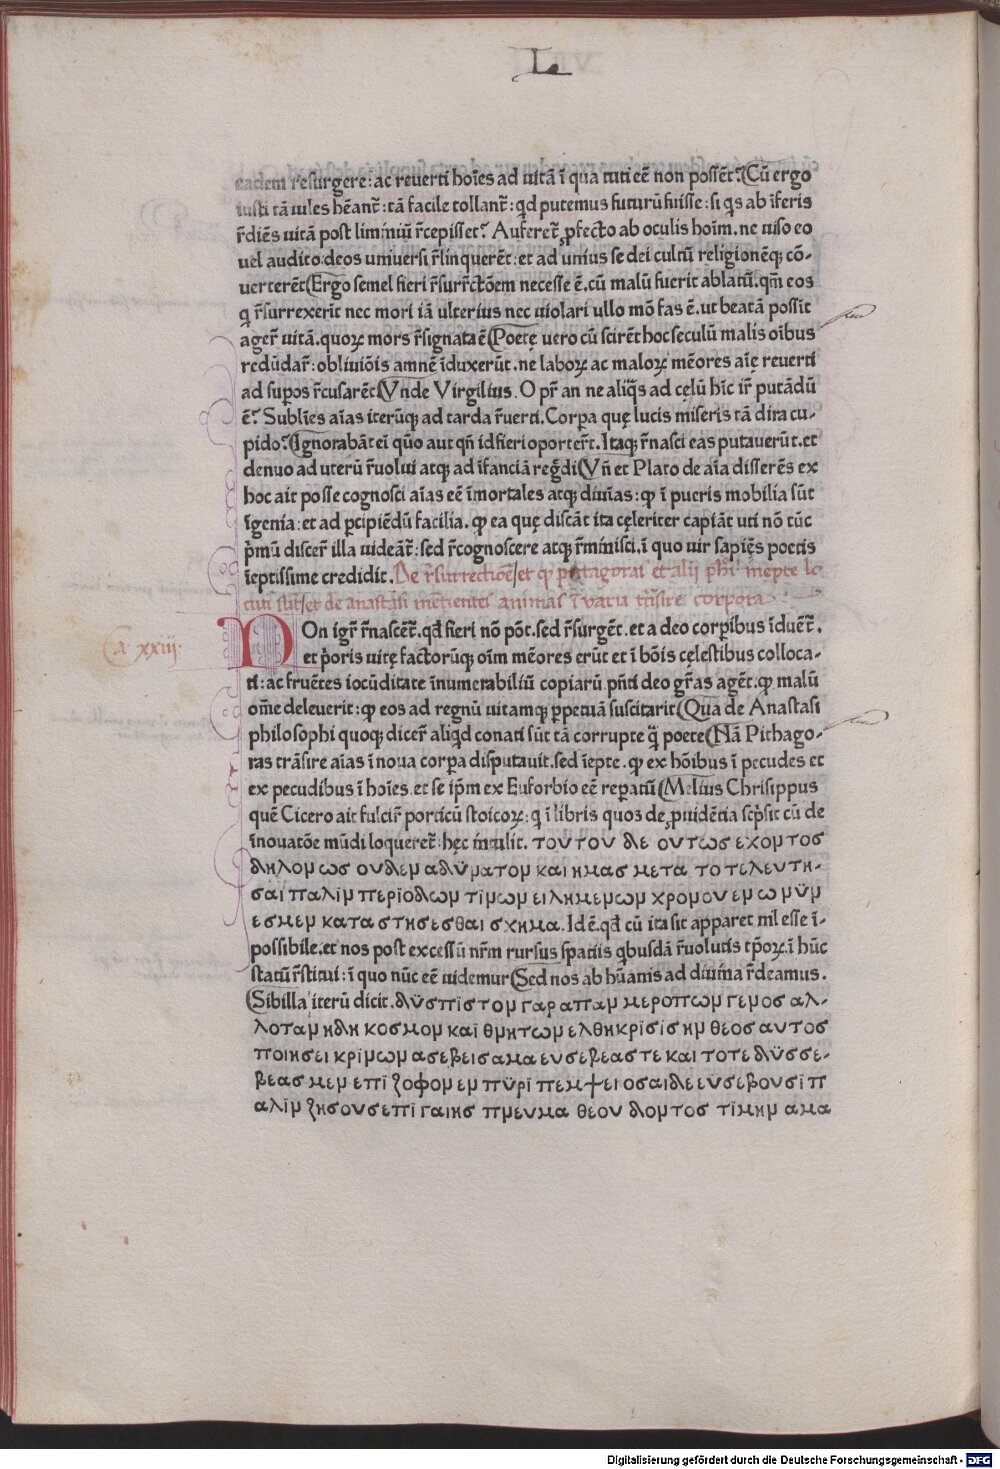 L
eadem resurgere: ac reuerti hoīes ad uitā ī qua tuti eē non possēt? Cū ergo
iusti tā uiles hēant̄: tā facile tollant̄: qd putemus futurū fuisse: si q̄s ab īferis
r̄diēs uitā post liminiū r̄cepisset? Auferet̄ ꝓfecto ab oculis hoīm. ne uiso eo
uel audito: deos uniuersi r̄linquerēt: et ad unius se dei cultū religionēq; cō-
uerterēt Ergo semel fieri r̄surr̄ctōem necesse ē. cū malū fuerit ablatū. qm̄ eos
q r̄surrexerit nec mori iā ulterius nec uiolari ullo mō fas ē. ut beatā possīt
ager̄ uitā. quoꝝ mors r̄signata ē Poetę uero cū scirēt hoc seculū malis oībus
redūdar̄: obliuiōis amnē īduxerūt. ne laboꝝ ac maloꝝ mēores aīę reuerti
ad supos r̄cusarēt Vnde Virgilius. O pr̄ an ne aliq̄s ad cęlū hīc ir̄ putādū
ē? Sublīes aīas iterūq; ad tarda r̄uerti. Corpa quę lucis miseris tā dira cu-
pido? Ignorabāt eī quo aut qn̄ id fieri oporter̄t. Itaq; r̄nasci eas putauerūt. et
denuo ad uterū r̄uolui atq; ad īfanciā regḡdi Vn̄ et Plato de aīa disserēs ex
hoc ait posse cognosci aīas eē īmortales atq; diuīas: ꝙ ī pueris mobilia sūt
īgenia: et ad pcipiēdū facilia. ꝙ ea quę discāt ita cęleriter capiāt uti nō tūc
p̄mū discer̄ illa uideāt̄: sed r̄cognoscere atq; r̄minisci. ī quo uir sapięs poetis
īeptissime credidit. De r̄surrectione/ et ꝙ pitagoras et alii phi inepte lo
cuti sūt/ et de anastasi mētientes animas ī varia trāsire corpora
Ca xxiii.
NOn igr̄ r̄nascēt̄. qd fieri nō pōt. sed r̄surgēt. et a deo corpibus īduēt̄.
et p̄oris uitę factorūq; oīm mēores erūt et ī bōis cęlestibus colloca-
ti: ac fruētes iocūditate īnumerabiliū copiarū. pn̄ti deo gr̄as agēt. ꝙ malū
om̄e deleuerit: ꝙ eos ad regnū uitamq; ppetuā suscitarit Qua de Anastasi
philosophi quoq; dicer̄ aliqd conati sūt tā corrupte q̄ poete Nā Pithago-
ras trāsire aīas ī noua corpa disputauit. sed īepte. ꝙ ex hōibus ī pecudes et
ex pecudibus ī hoīes. et se ipm̄ ex Euforbio eē repatū Melius Chrisippus
quē Cicero ait fulcir̄ porticū stoicoꝝ: q ī libris quos de ꝓuidētia scp̄sit cū de
īnouatōe mūdi loqueret̄: hęc intulit. τουτου δε ουτωσ εχοντοσ
δηλονωσ ουδεν αδυνατον και ημασ μετα το τελευτη-
σαι παλιν περιοδων τινων ειλημενων χρονου ενω νυν
εσμεν καταστησεσθαι σχημα. Id ē. qd cū ita sit apparet nil esse ī-
possibile. et nos post excessū nr̄m rursus spatiis qbusdā r̄uolutis tp̄oꝝ. ī hūc
statū r̄stitui: ī quo nūc eē uidemur Sed nos ab hūanis ad diuina r̄deamus.
Sibilla iterū dicit. δυσπιστον γαρ απαν μεροπων γενοσ αλ-
λοταν ηδη κοσμον και θνητων ελθη κρισισ ην θεοσ αυτοσ
ποιησει κρινων ασεβεισ αμα ευσεβεασ τε και τοτε δυσσε-
βεασ μεν επι ζοφον εν πυρι πεμψει οσαι δε ευσεβουσι π
αλιν ζησουσ επι γαιησ πνευμα θεου δοντοσ τιμην αμα
Digitalisierung gefördert durch die Deutsche Forschungsgemeinschaft - DFG